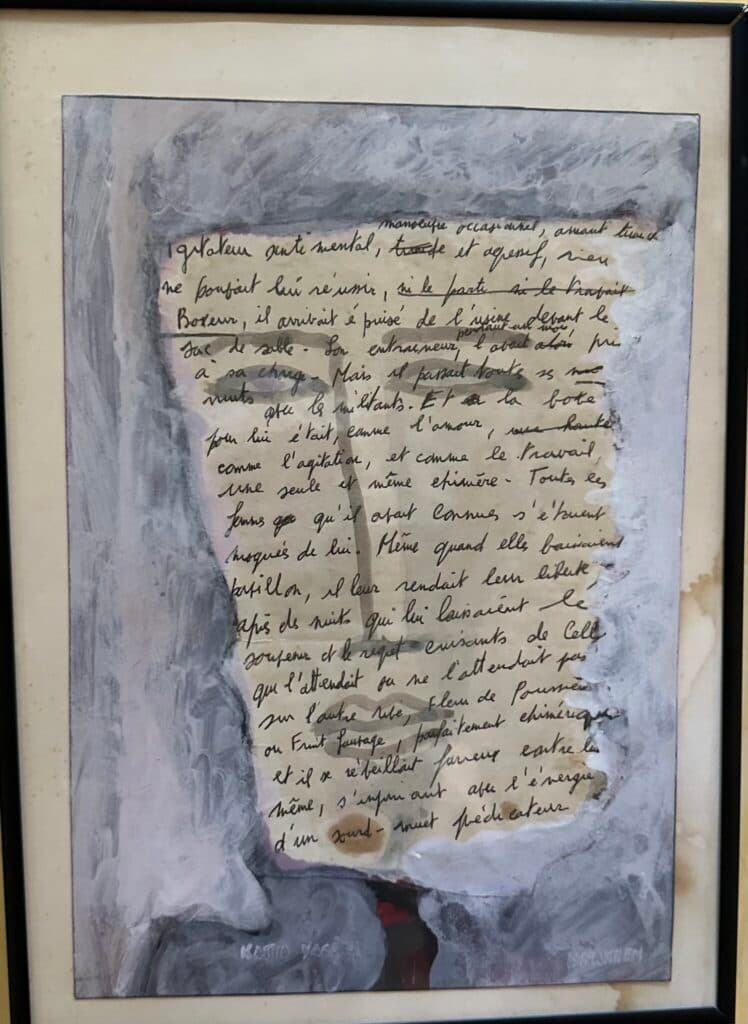 manoeuvre occasionnel, amant timide
Igitateur sentimental, timide et agressif, rien
ne pouvait lui réussir, ni le parti ni le travail
Boxeur, il arrivait épuisé de l'usine devant le
pendant un mois
sac de sable. Son entraineur, l'avait alors pris
à sa charge. Mais il passait toutes ses
nuits avec les militants. Et la boxe
pour lui était, comme l'amour,
comme l'agitation, et comme le travail,
une seule et même chimère. Toutes les
femmes qu'il avait connues s'étaient
moqués de lui. Même quand elles baissaient
pavillon, il leur rendait leur liberté,
après des nuits qui lui laissaient le
souvenir et le regret cuisants de Celle
qui l'attendait ou ne l'attendait pas
sur l'autre rive, Fleur de Poussière
ou Fruit Sauvage, parfaitement chimérique
et il se réveillait furieux contre lui
même, s'injuriant avec l'énergie
d'un sourd-muet prédicateur